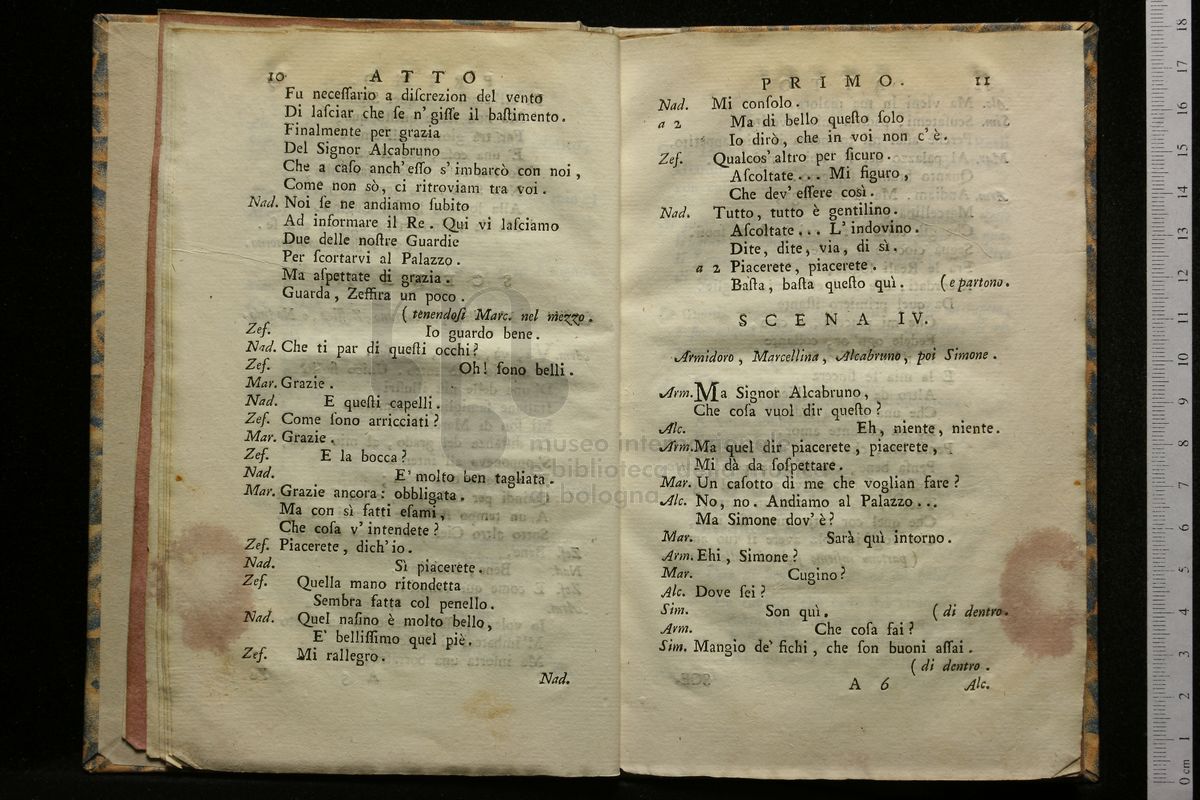 10 ATTO
Fu neceſſario a diſcrezion del vento
Di laſciar che ſe n'giſſe il baſtimento.
Finalmente per grazia
Del Signor Alcabruno
Che a caſo anch'eſſo s'imbarcò con noi,
Come non sò, ci ritroviam tra voi.
Nad. Noi ſe ne andiamo ſubito
Ad informare il Re. Qui vi laſciamo
Due delle noſtre Guardie
Per ſcortarvi al Palazzo.
Ma aſpettate di grazia.
Guarda, Zeffira un poco.
(tenendoſi Marc. nel mezzo.
Zef. Io guardo bene.
Nad. Che ti par di queſti occhi?
Zef. Oh! ſono belli.
Mar. Grazie.
Nad. E queſti capelli.
Zef. Come ſono arricciati?
Mar. Grazie.
Zef. E la bocca?
Nad. E' molto ben tagliata.
Mar. Grazie ancora: obbligata.
Ma con sì fatti eſami,
Che coſa v'intendete?
Zef. Piacerete, dich'io.
Nad. Sì piacerete.
Zef. Quella mano ritondetta
Sembra fatta col penello.
Nad. Quel naſino è molto bello,
E' belliſſimo quel piè.
Zef. Mi rallegro.
Nad.
PRIMO. 11
Nad. Mi conſolo.
a 2 Ma di bello queſto ſolo
Io dirò, che in voi non c'è.
Zef. Qualcos'altro per ſicuro.
Aſcoltate... Mi figuro,
Che dev'eſſere così.
Nad. Tutto, tutto è gentilino.
Aſcoltate... L'indovino.
Dite, dite, via, di sì.
a 2 Piacerete, piacerete.
Baſta, baſta queſto quì. (e partono.
SCENA IV.
Armidoro, Marcellina, Alcabruno, poi Simone.
Arm. Ma Signor Alcabruno,
Che coſa vuol dir queſto?
Alc. Eh, niente, niente.
Arm. Ma quel dir piacerete, piacerete,
Mi dà da ſoſpettare.
Mar. Un caſotto di me che voglian fare?
Alc. No, no. Andiamo al Palazzo...
Ma Simone dov'è?
Mar. Sarà quì intorno.
Arm. Ehi, Simone?
Mar. Cugino?
Alc. Dove ſei?
Sim. Son quì. (di dentro.
Arm. Che coſa fai?
Sim. Mangio de' fichi, che ſon buoni aſſai.
(di dentro.
A 6 Alc.